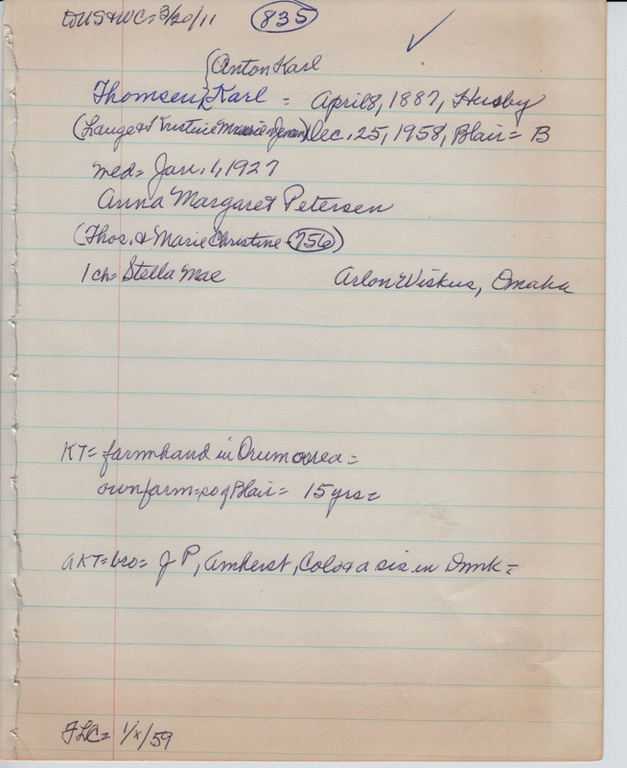 DUS&WC = 3/20/11 835 ✓
{Anton Karl
Thomsen, Karl = April 8, 1887, Husby
(Lauge & Kristine Marie Jensen) Dec. 25, 1958, Blair = B
Med = Jan. 1, 1927
Anna Margaret Petersen
(Thos. & Marie Christine - 756)
1 ch = Stella Mae Arlon Wiskus, Omaha
KT = farmhand in Orum area =
own farm = so of Blair = 15 yrs =
AKT = bro = J P, Amherst, Colo & a sis in Dnmk =
FLC = 1/x/59